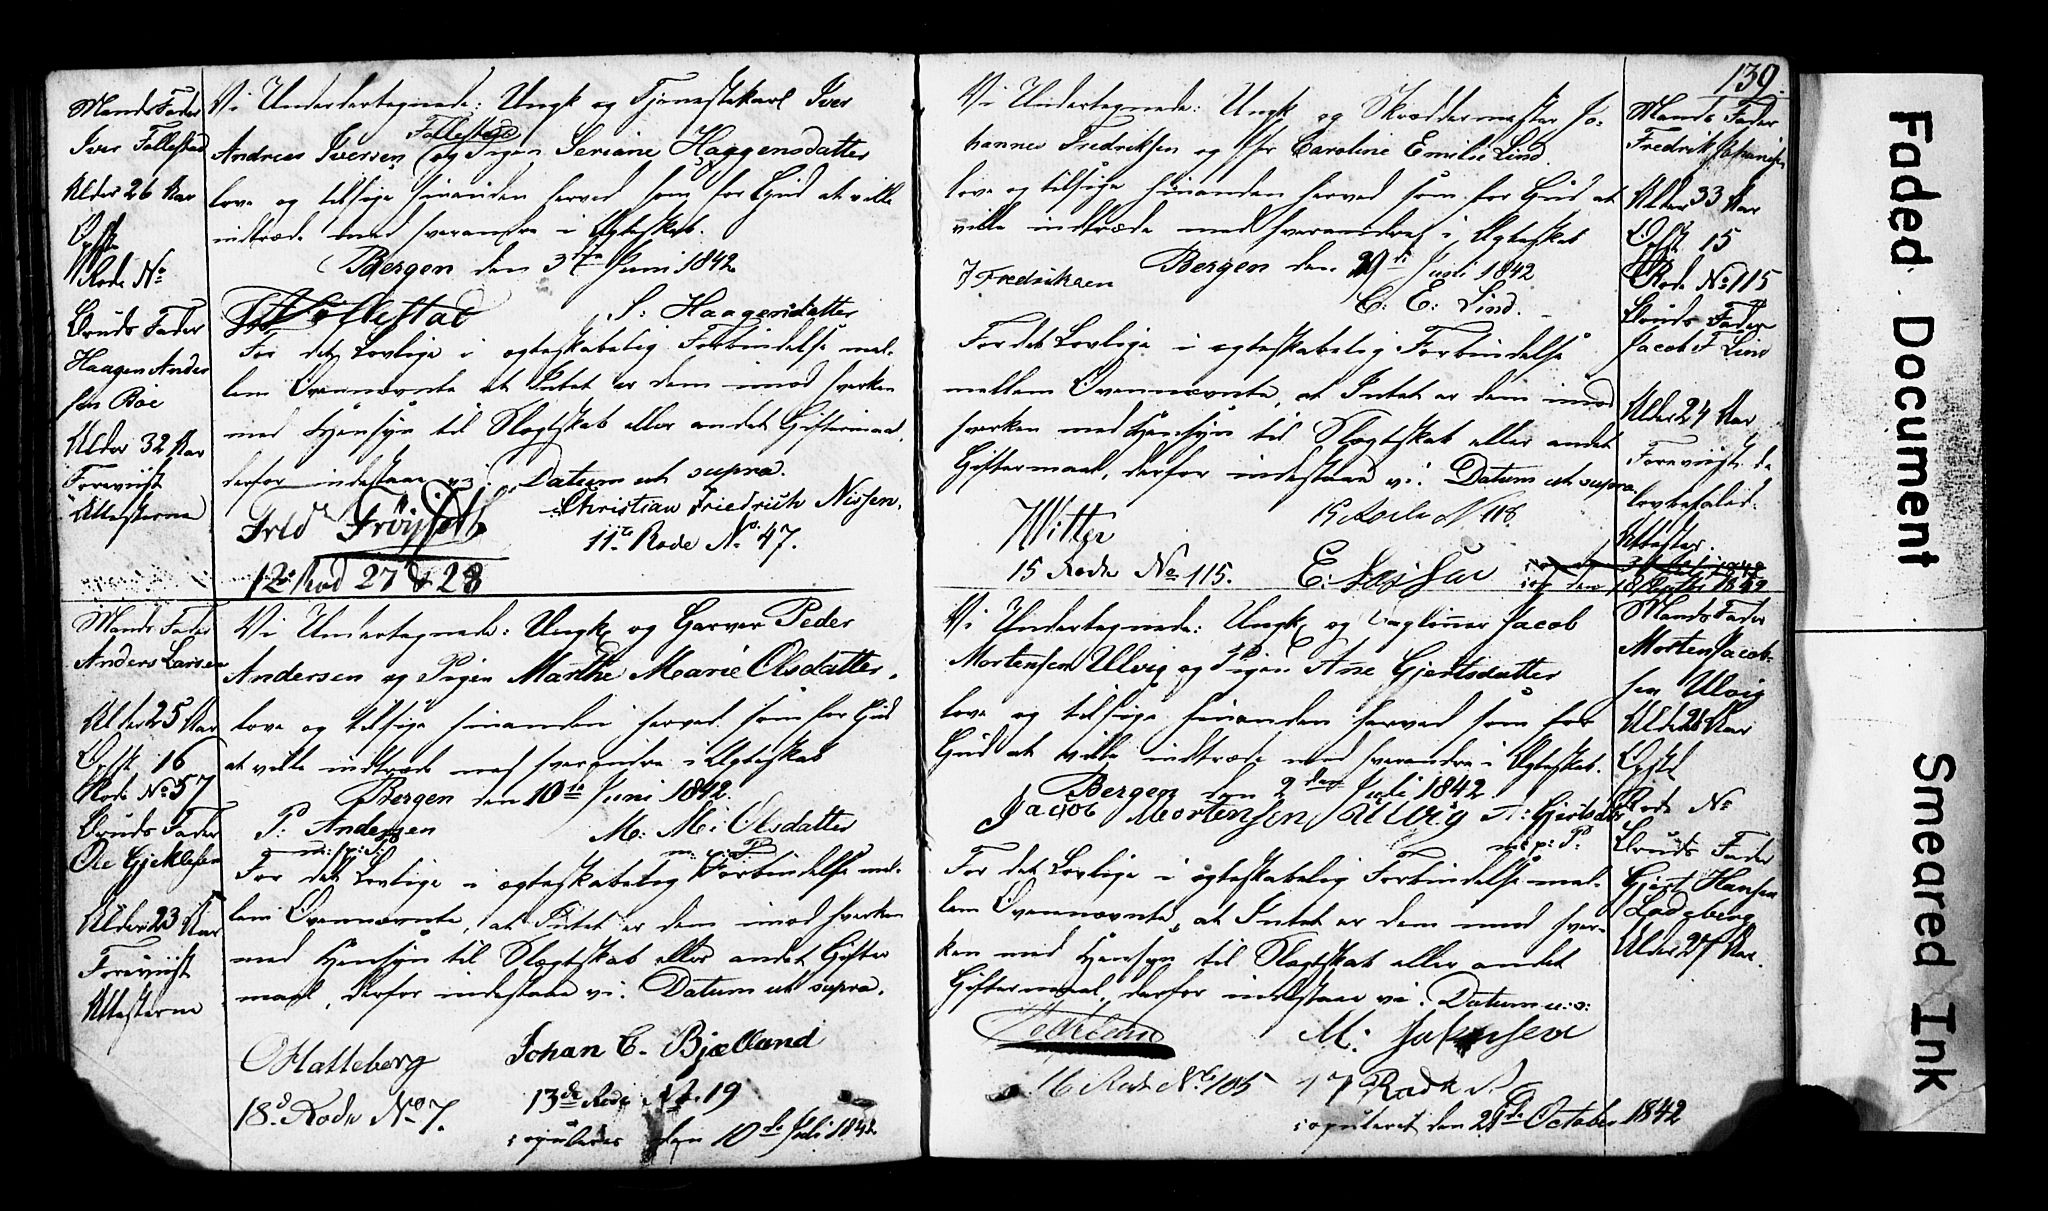 Mands Fader
Iver Follestad
Alder 26 Aar
Opsk
Rode No
Bruds Fader
Haagen Ander
sen Böe
Alder 32 Aar
Foreviist
Attesterne
Vi Undertegnede: Ungk og Tjenestekarl Iver
Follestad
Andreas Iversen og Pigen Seriane Haagensdatter
love og tilsige hinanden herved som for Gud at ville
indtræde med hverandre i Ægteskab.
Bergen den 3die Juni 1842
Follestad S: Haagensdatter
For det Lovlige i ægteskabelig Forbindelse mel-
lem Ovennævnte, at Intet er dem imod hverken
med Hensyn til Slægtskab eller andet Giftermaal,
derfor indestaae vi. Datum ut supra.
Christian Friedrich Nissen.
11te Rode No 47.
12 Rod 27 & 28
Mands Fader
Anders Larsen
Alder 25 Aar
Opsk 16
Rode No 57
Bruds Fader
Ole Gjeklesen
Alder 23 Aar
Foreviist
Attesterne
Vi Undertegnede: Ungk og Garver Peder
Andersen og Pigen Marthe Marie Olsdatter,
love og tilsige hinanden herved som for Gud
at ville indtræde med hverandre i Ægteskab
Bergen den 10de Juni 1842
P: Andersen M: M: Olsdatter
m: p: P: m: p: P
For det Lovlige i ægteskabelig Forbindelse mel-
lem Ovennævnte, at Intet er dem imod hverken
med Hensyn til Slægtskab eller andet Gifter
maal, derfor indestaae vi. Datum ut supra.
OHatleberg Johan C. Bjælland
18d Rode No 7. 13de Rode No. 19
copuleret den 10de Juli 1842
139.
Vi Undertegnede: Ungk og Skræddermester Jo-
hannes Fredriksen og Jfr Caroline Emilie Lind.
love og tilsige hinanden herved som for Gud at
ville indtræde med hverandre i Ægteskab
Bergen den 29de Juni 1842
J Fredriksen C: E: Lind.
For det Lovlige i ægteskabelig Forbindelse
mellem Ovennævnte, at Intet er dem imod
hverken med Hensyn til Slægtskab eller andet
Giftermaal, derfor indestaae vi. Datum ut supra.
Witter 15 Rode No 118
15 Rode No 115.
Mands Fader
Fredrik Johannesen
Alder 33 Aar
Opsk 15
Rode No 115
Bruds Fader
Jacob F Lind
Alder 24 Aar
Foreviist de
lovbefalede
Attester
cop den 18 1842
Vi Undertegnede: Ungk og Jacob
Mortensen Ulvig og Pigen Ane Gjertsdatter
love og tilsige hinanden herved som for
Gud at ville indtræde med hverandre i Ægteskab.
Bergen den 2den Juli 1842
Jacob Mortensen Ulvig A: Gjertsdatter
m: p: P:
For det Lovlige i ægteskabelig Forbindelse mel-
lem Ovennævnte, at Intet er dem imod hver-
ken med Hensyn til Slægtskab eller andet
Giftermaal, derfor indestaae vi. Datum u: s:
16 Rode No 105 17 Rode No
copuleret den 21de October 1842
Mands Fader
Morten Jacob-
sen Ulvig
Alder 28 Aar
Opsk
Rode No
Bruds Fader
Gjert Hansen
Ladeberg
Alder 27 Aar.
Faded Document
Smeared Ink